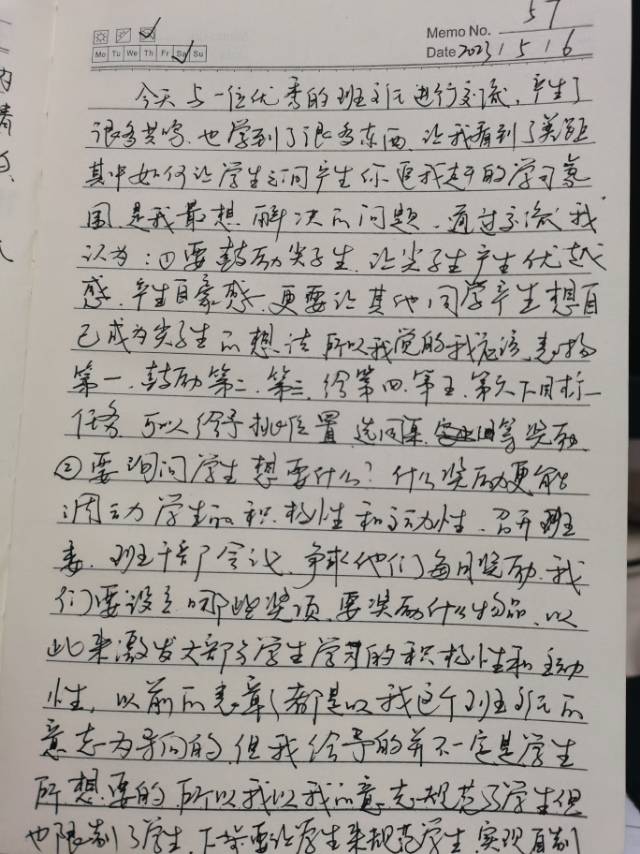 57
Memo No.
Mo Tu We Th Fr Sa Su
Date 2023 / 5 / 6
今天与一位优秀的班主任进行交流，产生了
很多共鸣，也学到了很多东西，让我看到了差距
其中如何让学生之间产生你追我赶的学习氛
围，是我最想解决的问题，通过交流我
认为：①要鼓励尖子生，让尖子生产生优越
感，产生自豪感，更要让其他同学产生想自
己成为尖子生的想法，所以我觉的我应该，表扬
第一，鼓励第二、第三，给第四、第五、第六下目标
任务，可以给予挑位置，选同桌，等奖励
②要询问学生想要什么？什么奖励更能
调动学生的积极性和主动性，召开班
委，班干部会议，争求他们每月奖励，我
们要设立哪些奖项，要奖励什么物品，以
此来激发大部分学生学习的积极性和主动
性，以前的表章都是以我这个班主任的
意志为导向的，但我给予的并不一定是学生
所想要的，所以我以我的意志规范了学生但
也限制了学生，下学要让学生来规范学生，实现自制